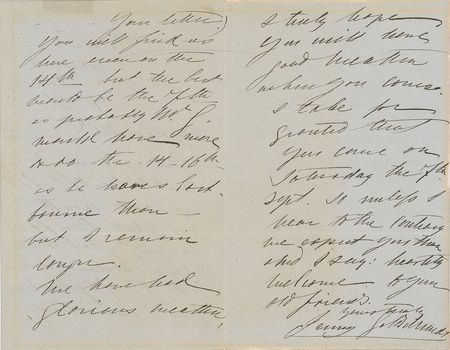 Your letter,
You will find us
here even on the
14th but the best
would be the 7th
as probably Mr G.
would have more
to do the 14-16th
as he leaves
bourne then —
but I remain
longer.
We have had
glorious weather,
I truly hope
you will have
good weather
when you come.
I take for
granted that
you come on
Saturday the 7th
Sept. so unless I
hear to the contrary
we expect you then
and I say: heartily
welcome to you
old friends.
Yours truly
Jenny Goldschmidt